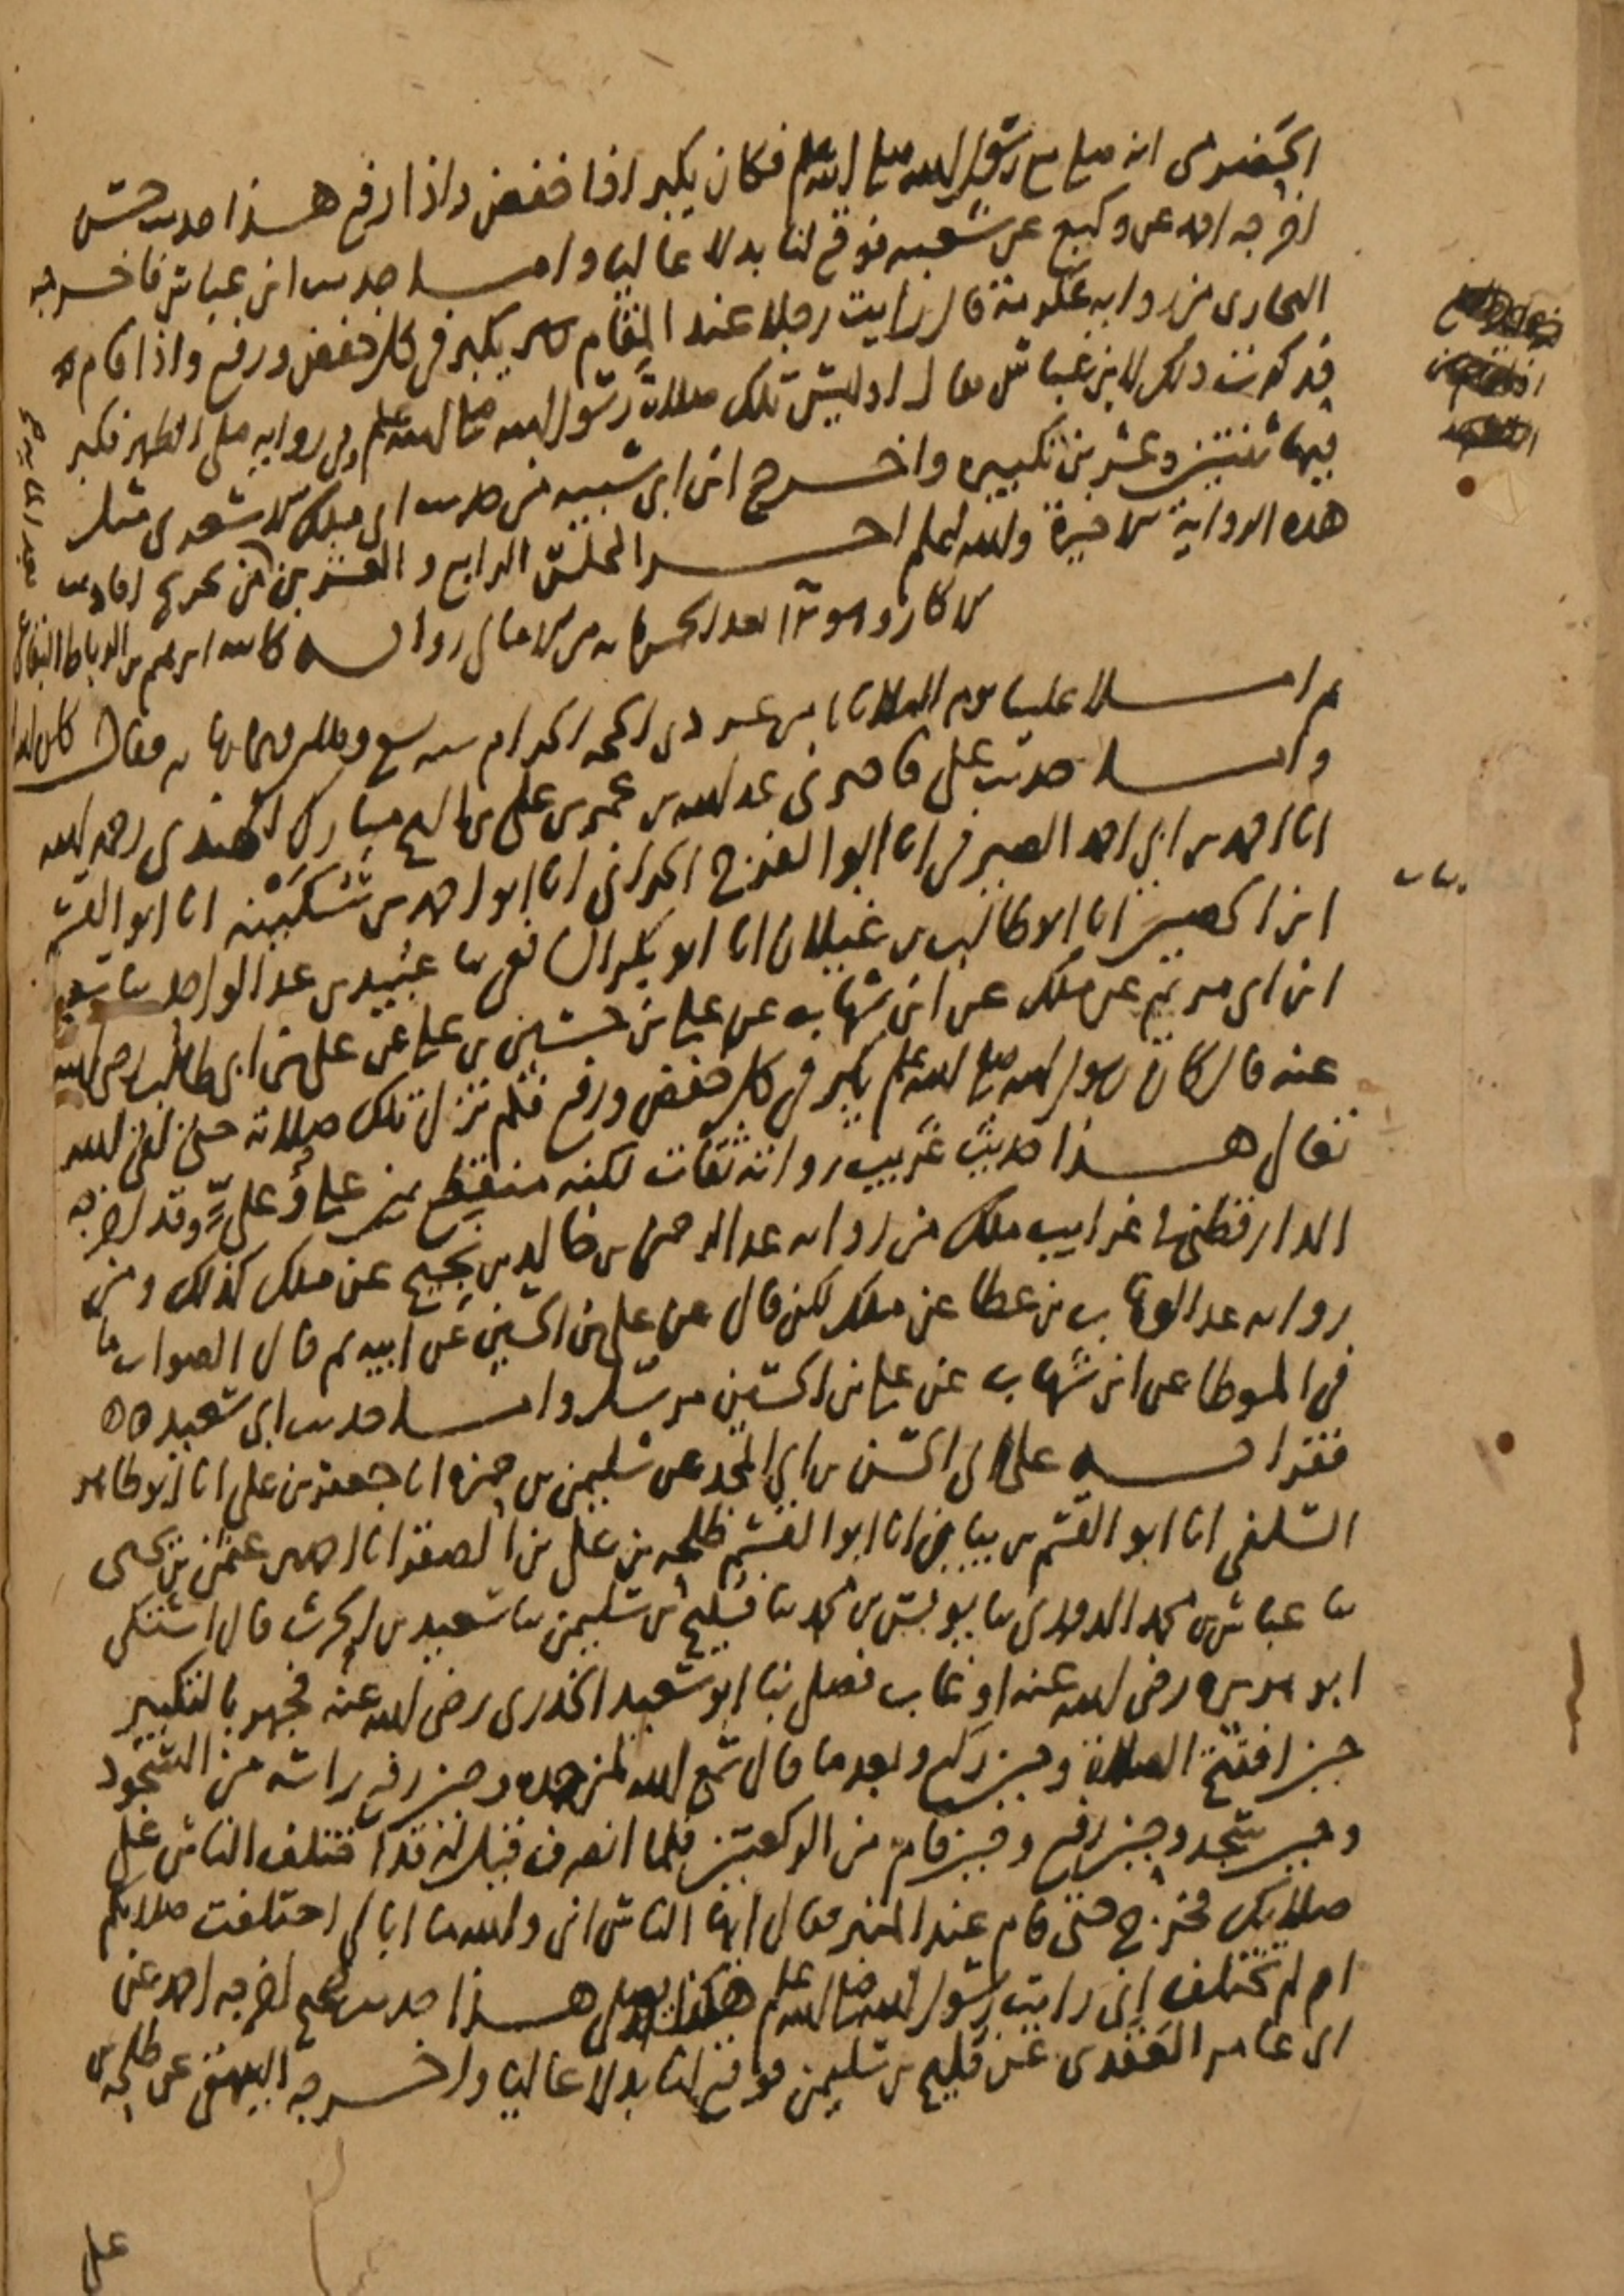 الحضرمى انه صلى مع رسول الله صلى الله عليه وسلم فكان يكبر اذا خفض واذا رفع هذا حديث حسن
اخرجه احمد عن وكيع عن شعبه فوقع لنا بدلا عاليا واما حديث ابن عباس فاخرجه
البخارى من روايه عكرمة قال رايت رجلا عند المقام يكبر فى كل خفض ورفع واذا قام
فذكرت ذلك لابن عباس فقال اوليس تلك صلاة رسول الله صلى الله عليه وسلم وفى روايه صلى الظهر فكبر
فيها ثنتين وعشرين تكبيره واخرج ابن ابى شيبه من حديث ابى ملك الاشعرى مثل
هذه الرواية الاخيرة والله اعلم اخر المجلس الرابع والعشرين من تخريج احاديث
الاذكار وهو بعد من الامالى رواية كاتبه ابرهيم بن الرباط البقاعى
ثم املا علينا يوم الثلاثا عشر ذى الحجه الحرام سنه سبع وثلاثين وثمانمايه فقال
واما حديث على فاخبرنى عبد الله بن عمر بن على بن مبارك الهندى رحمه الله
انا احمد بن ابى احمد الصيرفى انا ابو الفرج الحرانى انا ابو احمد بن سكينه انا ابو القسم
ابن الحصين انا ابو طالب بن غيلان انا ابو بكر الشافعى ثنا عبيد بن عبد الواحد ثنا سعيد
ابن ابى مريم عن ملك عن ابن شهاب عن على بن حسين بن على عن على بن ابى طالب رضى الله
عنه قال كان رسول الله صلى الله عليه وسلم يكبر فى كل خفض ورفع فلم تزل تلك صلاته حتى لقى الله
تعالى هذا حديث غريب رواته ثقات لكنه منقطع بين على وعلى وقد اخرجه
الدارقطنى فى غرايب ملك من روايه عبد الرحمن بن خالد بن نجيح عن ملك كذلك ومن
روايه عبد الوهاب بن عطا عن ملك لكن قال عن على بن الحسين عن ابيه ثم قال الصواب ما
فى الموطا عن ابن شهاب عن على بن الحسين مرسلا واما حديث ابى سعيد
فقرات على ابى الحسن بن ابى المجد عن سليمن بن حمزه انا جعفر بن على انا ابو طاهر
السلفى انا ابو القسم بن بيان انا ابو القسم طلحه بن على بن الصقر انا احمد بن عثمن بن يحيى
ثنا عباس بن محمد الدورى ثنا يونس بن محمد ثنا فليح بن سليمن ثنا سعيد بن الحرث قال اشتكى
ابو هريره رضى الله عنه او غاب فصلى بنا ابو سعيد الخدرى رضى الله عنه فجهر بالتكبير
حين افتتح الصلاة وحين ركع وبعد ما قال سمع الله لمن حمده وحين رفع راسه من السجود
وحين سجد وحين رفع وحين قام من الركعتين فلما انصرف قيل له قد اختلف الناس على
صلاتك فخرج حتى قام عند المنبر فقال ايها الناس انى والله ما ابالى اختلفت صلاتكم
ام لم تختلف انى رايت رسول الله صلى الله عليه وسلم هكذا يصلى هذا حديث صحيح اخرجه احمد عن
ابى عامر العقدى عن فليح بن سليمن فوقع لنا بدلا عاليا واخرجه البيهقى عن طلحه بن
على